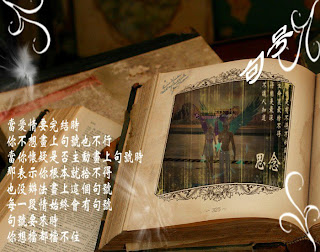 句号
當愛情要完結時
你不想畫上句號也不行
當你懷疑是否主動畫上句號時
那表示你根本就捨不得
也沒辦法畫上這個句號
每一段情始終會有句號
句號要來時
你想擋都擋不住
思念